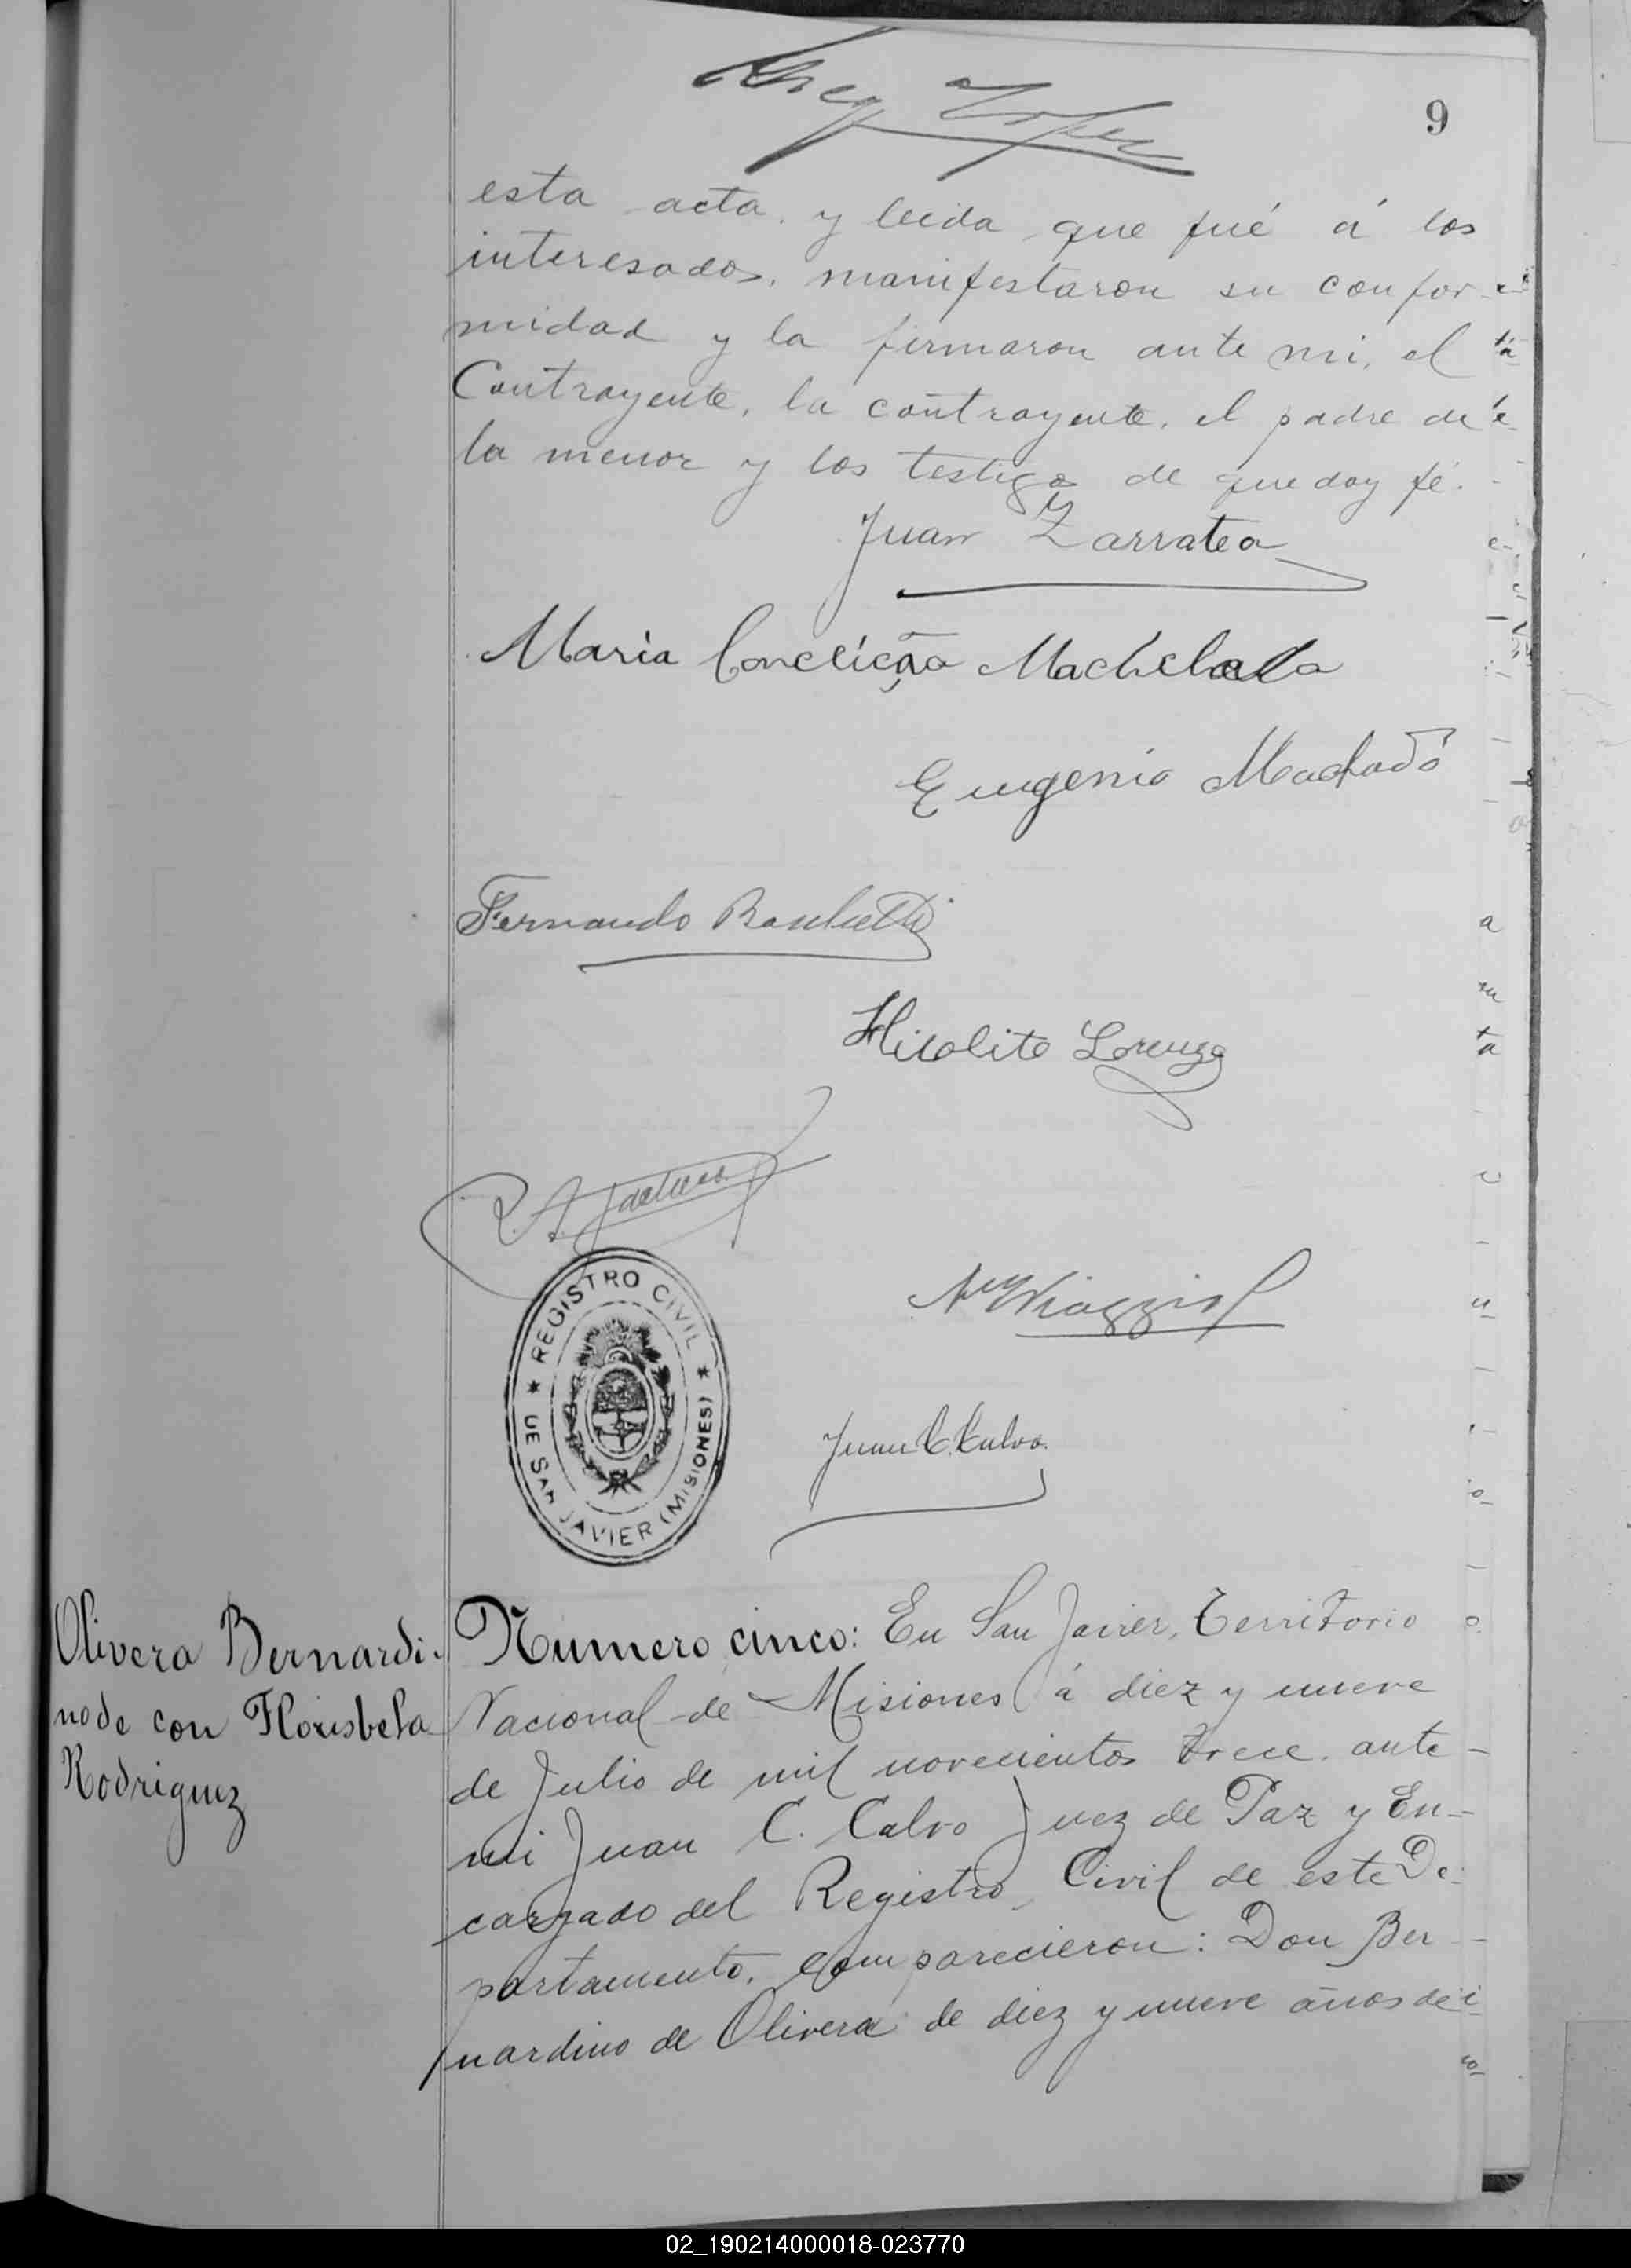 9
esta acta, y leida que fué á los
interesados, manifestaron su confor
midad y la firmaron ante mi, el
Contrayente, la contrayente, el padre de
la menor y los testigos de que doy fé.
Juan Zarratea
Maria Conceição
Eugenio Machado
Fernando
Lorenzo
REGISTRO CIVIL
DE SAN JAVIER (MISIONES)
Juan C. Calvo.
Olivera Bernardi-
no de con Florisbela
Rodriguez
Numero cinco: En San Javier, Territorio
Nacional de Misiones á diez y nueve
de Julio de mil novecientos trece, ante
mi Juan C. Calvo Juez de Paz y En-
cargado del Registro Civil de este De-
partamento, comparecieron: Don Ber
nardino de Olivera de diez y nueve años de
02_190214000018-023770